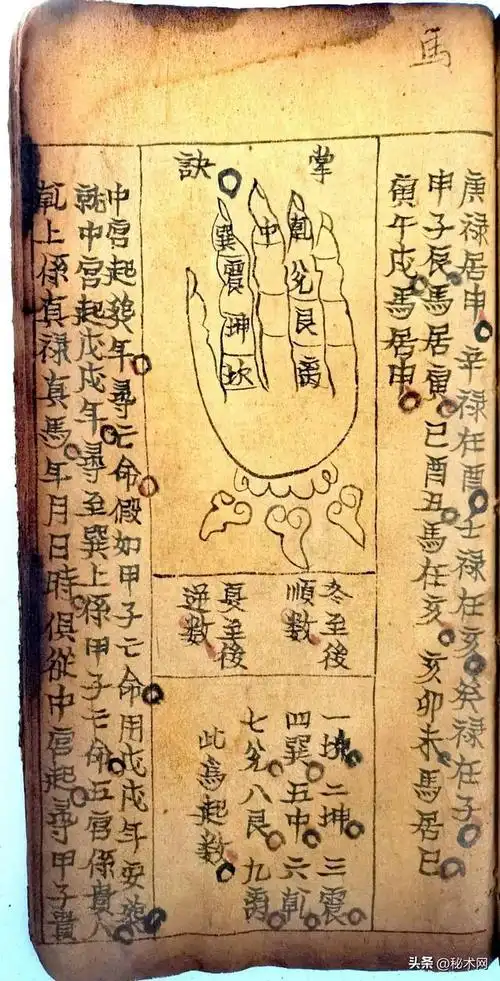 馬
庚禄居申 辛禄在酉 壬禄在亥 癸禄在子
申子辰馬居寅 巳酉丑馬在亥 亥卯未馬居巳
寅午戌馬居申
掌訣
乾兌艮离
中
巽震坤坎
冬至後
順數
夏至後
逆數
一坎 二坤 三震
四巽 五中 六乾
七兌 八艮 九离
此爲起數
中宮起葬年尋亡命假如甲子亡命用戊戌年安葬
就中宮起戊戌年尋至巽上係甲子亡命五宮係貴人
乾上係真禄真馬年月日時俱從中宮起尋甲子貴
头条 @秘术网